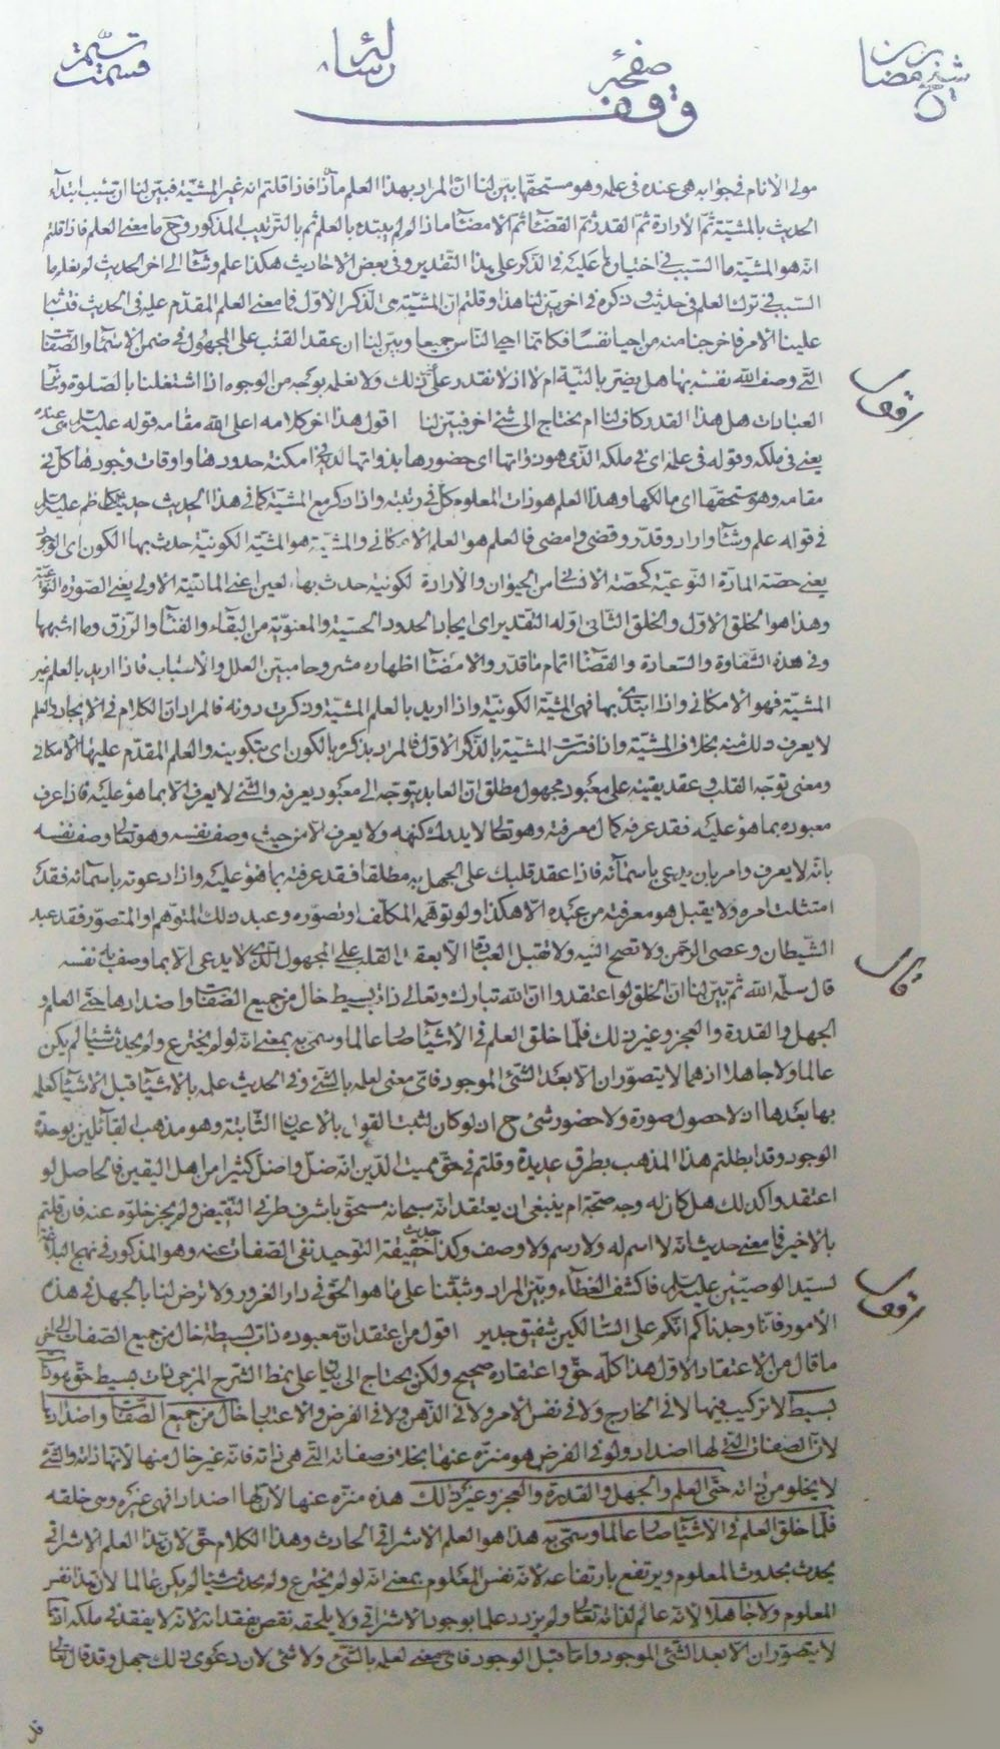 شيخ رمضان
صفحه
رسائله
قسمت
وقف
مولى الأنام فى جوابه هى عنده فى علمه وهو مستحقها بيّن لنا انّ المراد بهذا العلم ماذا فاذا قلتم انه غير المشيّة فبيّن لنا ان سبب ابتداء
الحديث بالمشيّة ثم الارادة ثم القدر ثم القضاء ثم الامضاء ماذا لم لم يبتدء بالعلم ثم بالترتيب المذكور وح ما معنى العلم فاذا قلتم
انه هو المشيّة ما السبب فى اختياره عليه فى الذكر على هذا التقدير وفى بعض الاحاديث هكذا علم وشاء الى اخر الحديث لم نعلم ما
السبب فى ترك العلم فى حديث وذكره فى اخر بيّن لنا هذا وقلتم ان المشيّة هى الذكر الاوّل فما معنى العلم المقدّم عليه فى الحديث
علينا الامر فاخرجنا منه من احيا نفسًا فكانّما احيى الناس جميعا وبيّن لنا ان عقد القلب على المجهول فى ضمن الاسماء والصّفات
التى وصف الله نفسه بها هل يضرّ بالنيّة ام لا اذ لا نقدر على ذلك ولا نعلمه بوجه من الوجوه اذا اشتغلنا بالصّلوة وساير
العبادات هل هذا القدر كاف لنا ام يحتاج الى شئ اخر فبيّن لنا اقول هذا اخر كلامه اعلى الله مقامه قوله عليه السلام هى عنده
يعنى فى ملكه وقوله فى علمه اى فى ملكه الذى هو ذواتها اى حضورها بذواتها لديه فى امكنة حدودها واوقات وجودها كلّ فى
مقامه وهو مستحقها اى مالكها وهذا العلم هو ذات المعلوم كلّ فى رتبته واذا ذكر مع المشيّة كما فى هذا الحديث حديث الكاظم عليه السلام
فى قوله علم وشاء واراد وقدّر وقضى وامضى فالعلم هو العلم الامكانى والمشيّة هو المشيّة الكونيّة حدث بها الكون اى الوجود
يعنى حصّة المادّة النوعيّة كحصّة الانسان من الحيوان والارادة الكونية حدث بها العين اعنى الماهيّة الاولى يعنى الصّورة النوعيّة
وهذا هو الخلق الاوّل والخلق الثانى اوّله التقدير اى ايجاد الحدود الحسيّة والمعنويّة من البقاء والفناء والرّزق وما اشبهها
وفى هذه الشقاوة والسّعادة والقضاء اتمام ما قدّر والامضاء اظهاره مشروحا مبيّن العلل والاسباب فاذا اريد بالعلم غير
المشيّة فهو الامكانى واذا ابتدئ بها فهى المشيّة الكونيّة واذا اريد بالعلم المشيّة وذكرت دونه فالمراد انّ الكلام فى الايجاد والعلم
لا يعرف ذلك منه بخلاف المشيّة وانا فسّرت المشيّة بالذّكر الاوّل فالمراد بذكره بالكون اى بتكوينه والعلم المقدّم عليها الامكانى
ومعنى توجّه القلب وعقد يقينه على معبود مجهول مطلق انّ العابد يتوجّه الى معبود يعرفه والشئ لا يعرف الا بما هو عليه فاذا عرف
معبوده بما هو عليه فقد عرفه كمال معرفته وهو تعالى لا يدرك كنهه ولا يعرف الا من حيث وصف نفسه وهو تعالى وصف نفسه
بانّه لا يعرف وامر بان يدعى باسمائه فاذا عقد قلبك على الجهل به مطلقا فقد عرفته بما هو عليه واذا دعوته باسمائه فقد
امتثلت امره ولا يقبل هو معرفته من عبده الا هكذا ولو توهّمه المكلّف او تصوّره وعبد ذلك المتوهّم او المتصوّر فقد عبد
الشّيطان وعصى الرّحمن ولا تصح النيّة ولا تقبل العبادة الا بعقد القلب على المجهول الذى لا يدعى الا بما وصف به نفسه
قال سلّمه الله ثم بيّن لنا ان الخلق لو اعتقدوا انّ الله تبارك وتعالى ذات بسيط خال من جميع الصّفات واضدادها حتى العلم و
الجهل والقدرة والعجز وغير ذلك فلمّا خلق العلم فى الاشياء صار عالما وسمّى به بمعنى انّه لو لم يخترع ولم يحدث شيئا لم يكن
عالما ولا جاهلا اذ هما لا يتصوّران الا بعد الشئ الموجود فاىّ معنى لعلمه بالشئ وفى الحديث علمه بالاشياء قبل الاشياء كعلمه
بها بعدها اذ لا حصول صورة ولا حضور شئ ح اذ لو كان لثبت القول بالاعيان الثابتة وهو مذهب القائلين بوحدة
الوجود وقد ابطلتم هذا المذهب بطرق عديدة وقلتم فى حق مميت الدّين انّه ضلّ واضلّ كثيرا من اهل اليقين فالحاصل لو
اعتقدوا كذلك هل كان له وجه صحّة ام ينبغى ان يعتقد انّه سبحانه مستحق باشرف طرفى النّقيض ولم يجز خلوّه عنه فان قلتم
بالاخير فما معنى حديث انّه لا اسم له ولا رسم ولا وصف وكذا حديث حقيقة التّوحيد نفى الصّفات عنه وهو المذكور فى نهج البلاغة
لسيّد الوصيّين عليه السلام فاكشف الغطاء وبيّن المراد وثبّتنا على ما هو الحقّ فى دار الغرور ولا ترض لنا بالجهل فى هذه
الأمور فانّا وجدناكم انكم على السّالكين شفيق جدير اقول من اعتقد انّ معبوده ذات بسيطة خال من جميع الصّفات الى اخر
ما قال من الاعتقاد الاوّل هذا كلّه حقّ واعتقاده صحيح ولكن يحتاج الى بيان على نمط الشّرح المزجى ذات بسيط حقّ
بسيط لا تركيب فيها لا فى الخارج ولا فى نفس الامر ولا فى الذّهن ولا فى الفرض والاعتبار خال من جميع الصّفات واضدادها
لانّ الصّفات التى لها اضداد ولو فى الفرض هو منزّه عنها بخلاف صفاته التى هى ذاته فانّه غير خال منها لانّها ذاته والشئ
لا يخلو من ذاته حتى العلم والجهل والقدرة والعجز وغير ذلك هذه منزّه عنها لانّ لها اضداد فهى غيره وهى خلقه
فلمّا خلق العلم فى الاشياء صار عالما وسمّى به هذا هو العلم الاشراقى الحادث وهذا الكلام حقّ لانّ هذا العلم الاشراقى
يحدث بحدوث المعلوم ويرتفع بارتفاعه لانّه نفس المعلوم بمعنى انّه لو لم يخترع ولم يحدث شيئا لم يكن عالما لانّ هذا نفس
المعلوم ولا جاهلا لانّه عالم لذاته تعالى ولم يزدد علما بوجود الاشراقى ولا يلحقه نقص بفقدانه لانّه لا يفقد فى ملكه اذ هما
لا يتصوّران الا بعد الشئ الموجود واما قبل الوجود فاىّ معنى لعلمه بالشئ ولا شئ لان دعوى ذلك جهل وقد قال تعالى
قال